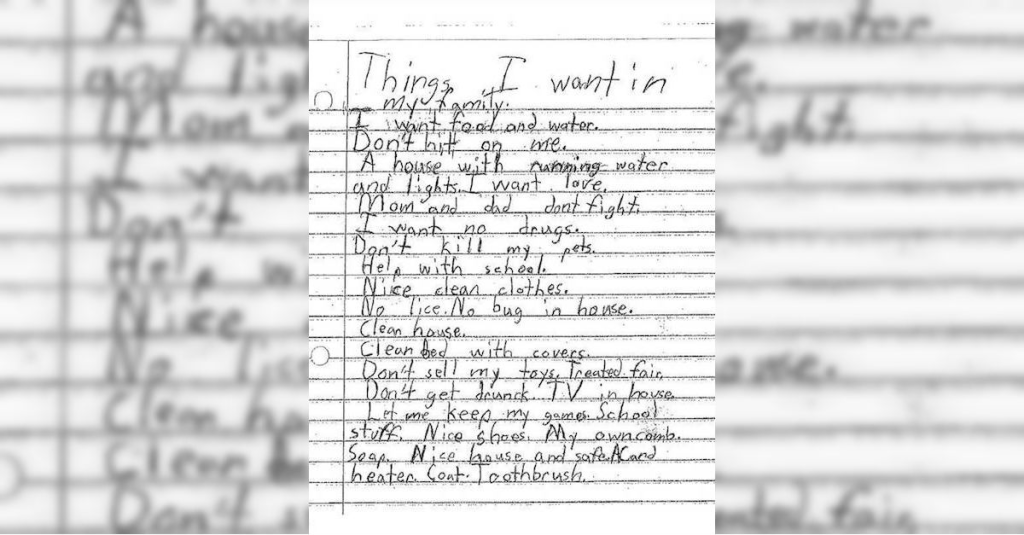 Things I want in
my family.
I want food and water.
Don't hit on me.
A house with running water
and lights. I want love.
Mom and dad dont fight.
I want no drugs.
Don't kill my pets.
Help with school.
Nice clean clothes.
No lice. No bug in house.
Clean house.
Clean bed with covers.
Don't sell my toys. Treated fair.
Don't get drunck. TV in house.
Let me keep my games. School
stuff. Nice shoes. My own comb.
Soap. Nice house and safe. AC and
heater. Coat. Toothbrush.